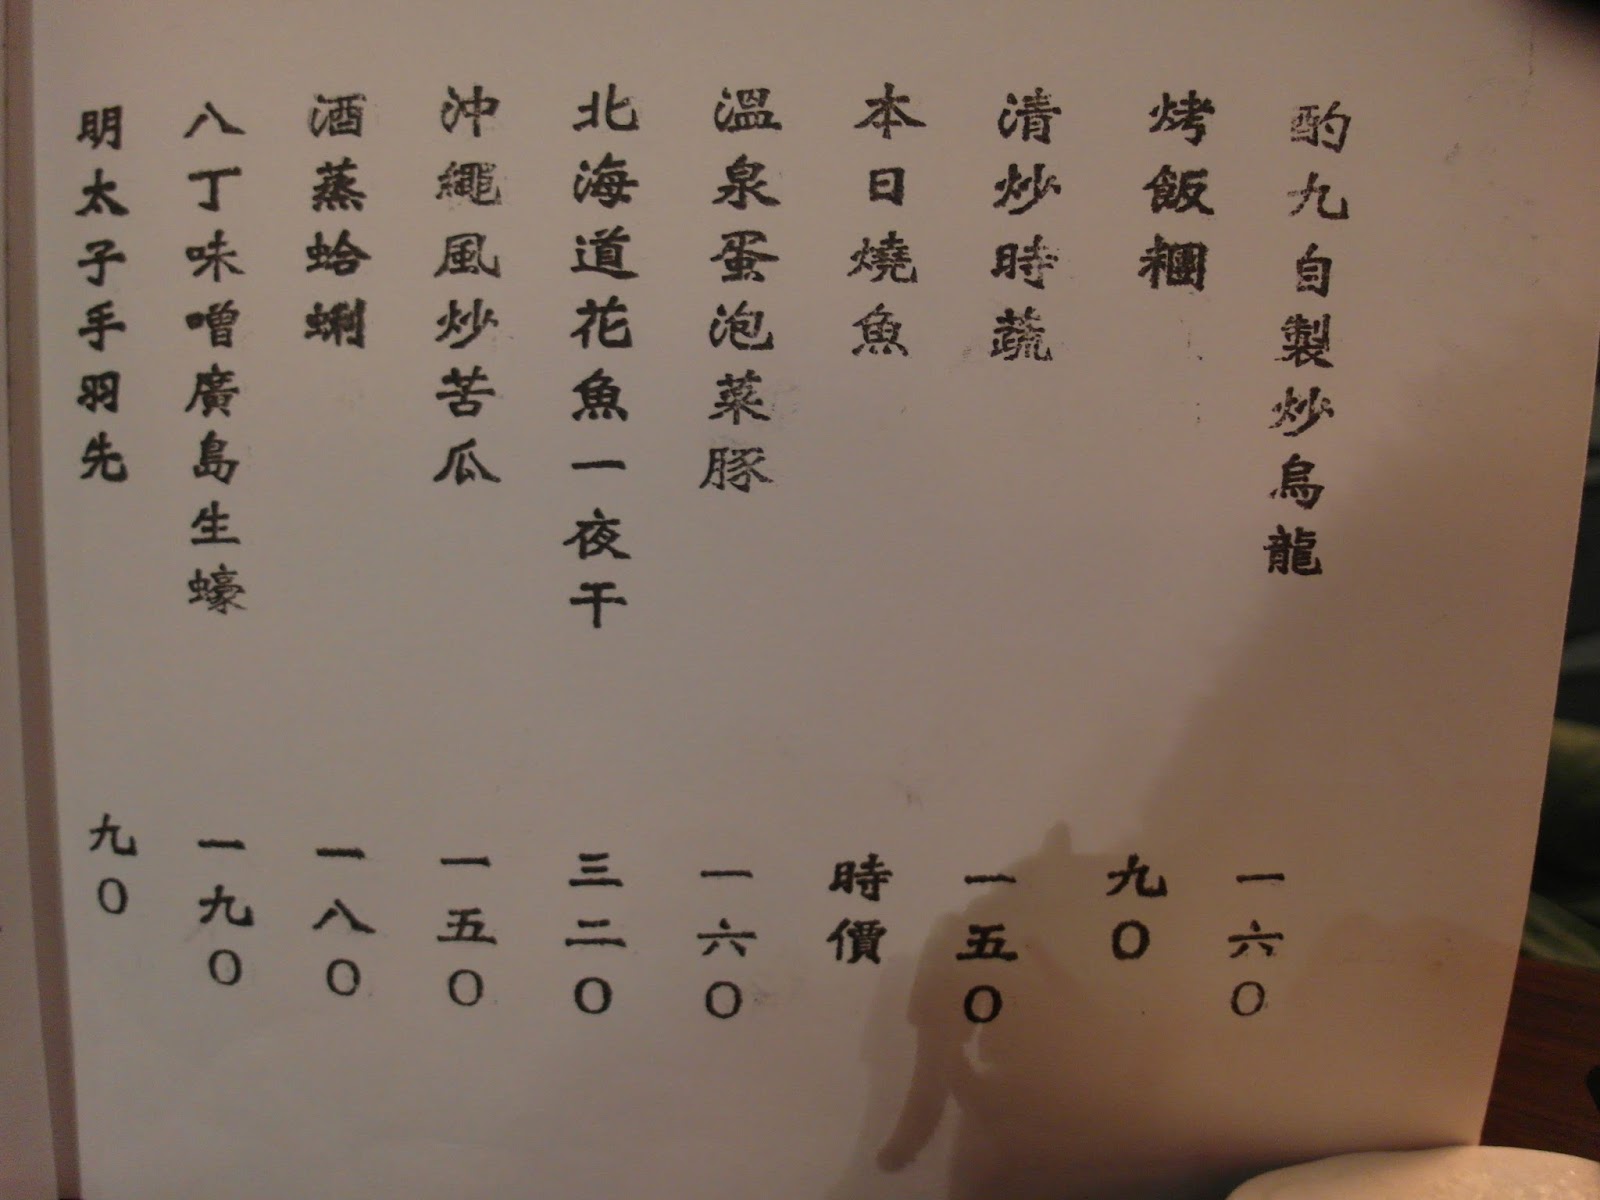 酌九自製炒烏龍 一六〇
烤飯糰 九〇
清炒時蔬 一五〇
本日燒魚 時價
溫泉蛋泡菜豚 一六〇
北海道花魚一夜干 三二〇
沖繩風炒苦瓜 一五〇
酒蒸蛤蜊 一八〇
八丁味噌廣島生蠔 一九〇
明太子手羽先 九〇